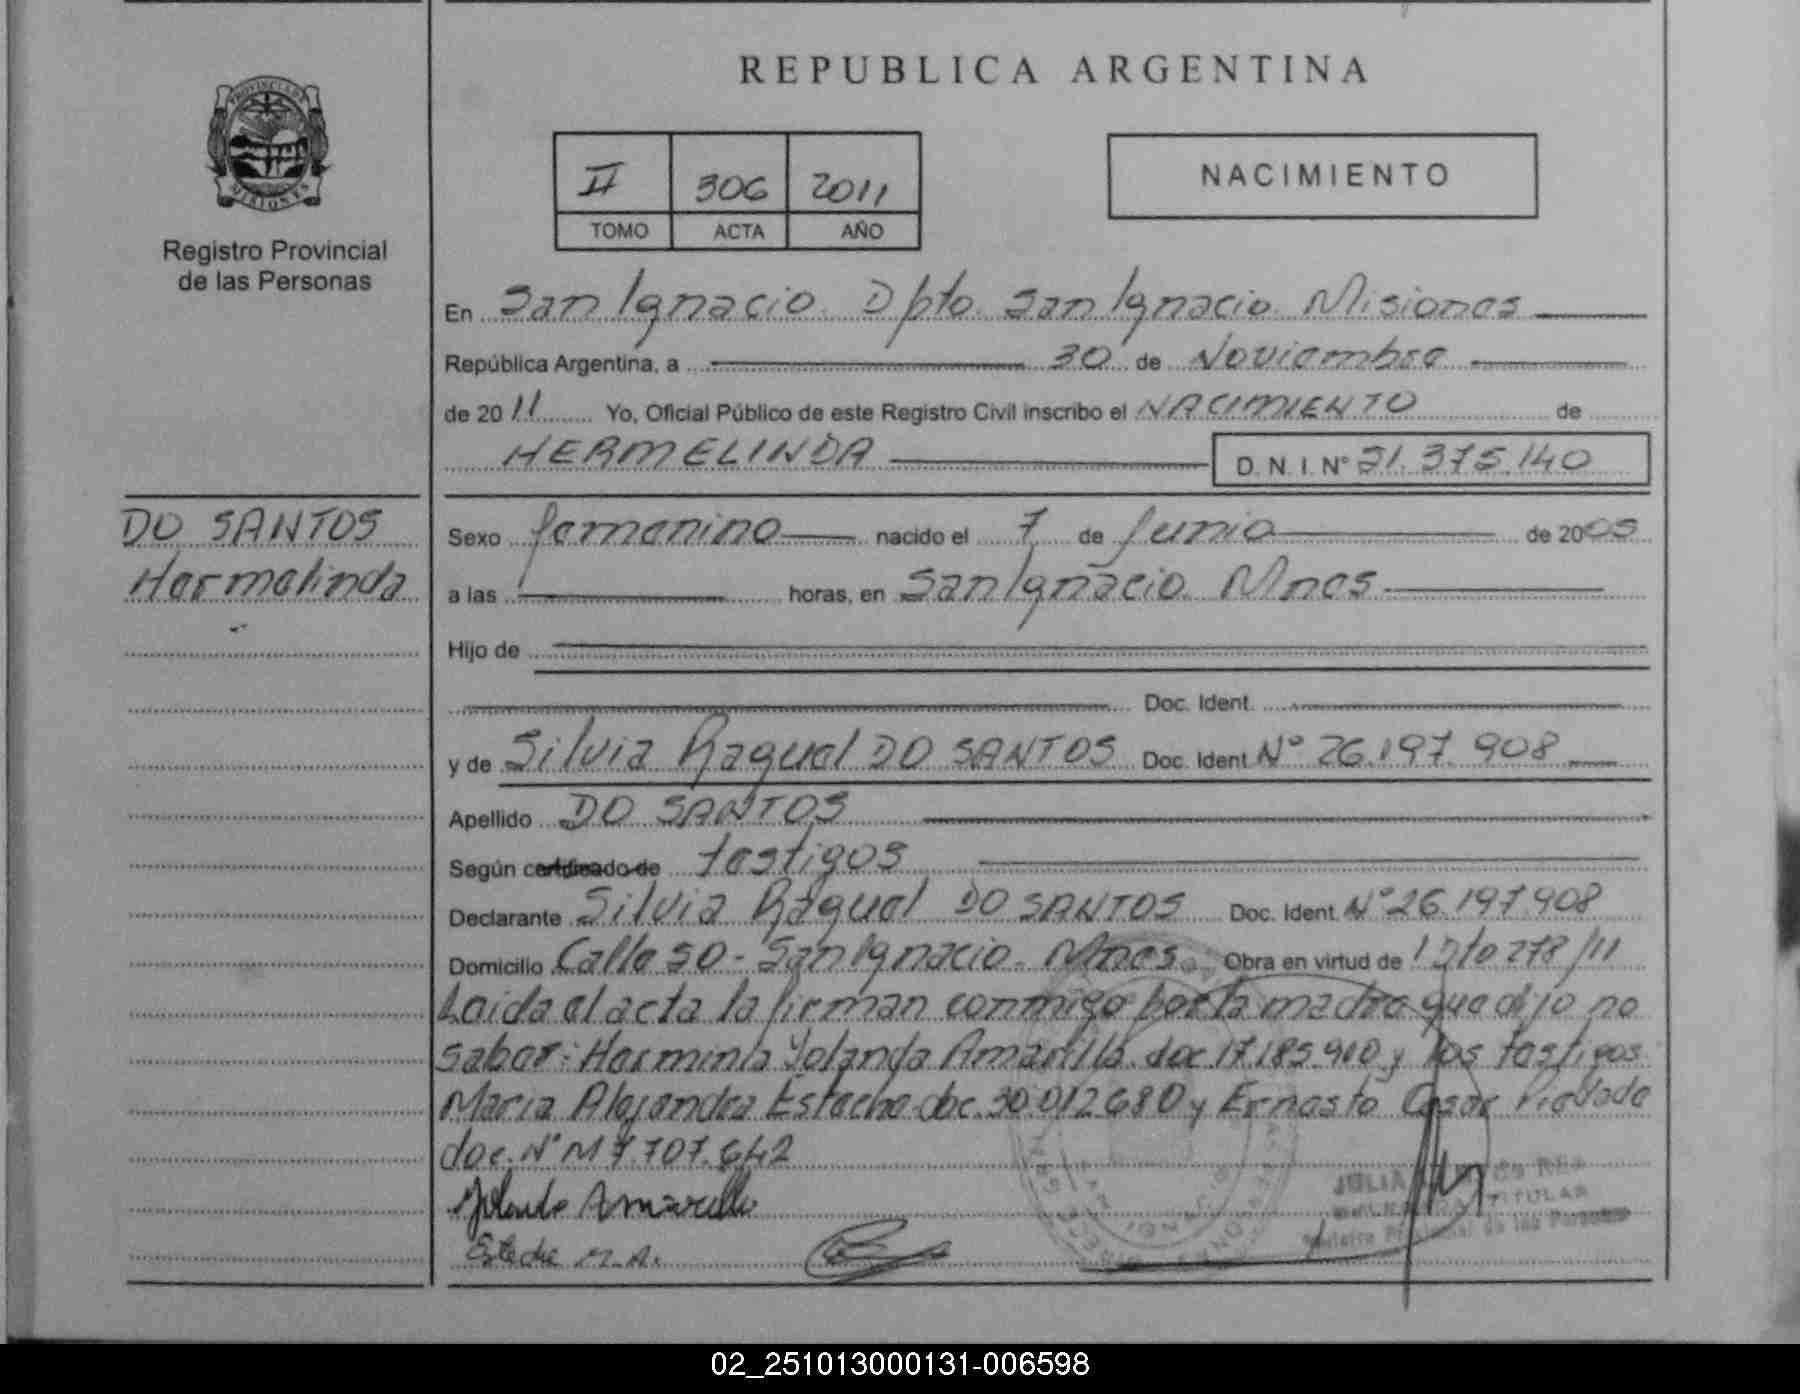 REPUBLICA ARGENTINA
PROVINCIA DE MISIONES
Registro Provincial
de las Personas
II 306 2011
TOMO ACTA AÑO
NACIMIENTO
En San Ignacio. Dpto. San Ignacio. Misiones
República Argentina, a 30 de Noviembre
de 2011 Yo, Oficial Público de este Registro Civil inscribo el NACIMIENTO de
HERMELINDA D.N.I. N° 51.375.140
DO SANTOS
Hermelinda
Sexo femenino nacido el 7 de Junio de 2005
a las horas, en San Ignacio. Mnes
Hijo de
Doc. Ident.
y de Silvia Raquel DO SANTOS Doc. Ident. N° 26.197.908
Apellido DO SANTOS
Según certificado de testigos
Declarante Silvia Raquel DO SANTOS Doc. Ident. N° 26.197.908
Domicilio Calle 50 - San Ignacio. Mnes. Obra en virtud de 278/11
Leida el acta la firman conmigo por la madre que dijo no
saber: Herminia Yolanda Amarilla. doc. 17.185.910 y los testigos
Maria Alejandra Esteche doc. 30.012.680 y Ernesto Cesar
doc. N° M 7.707.642
Yolanda Amarilla
Esteche M. A.
JULIA
TITULAR
Provincial de las Personas
02_251013000131-006598